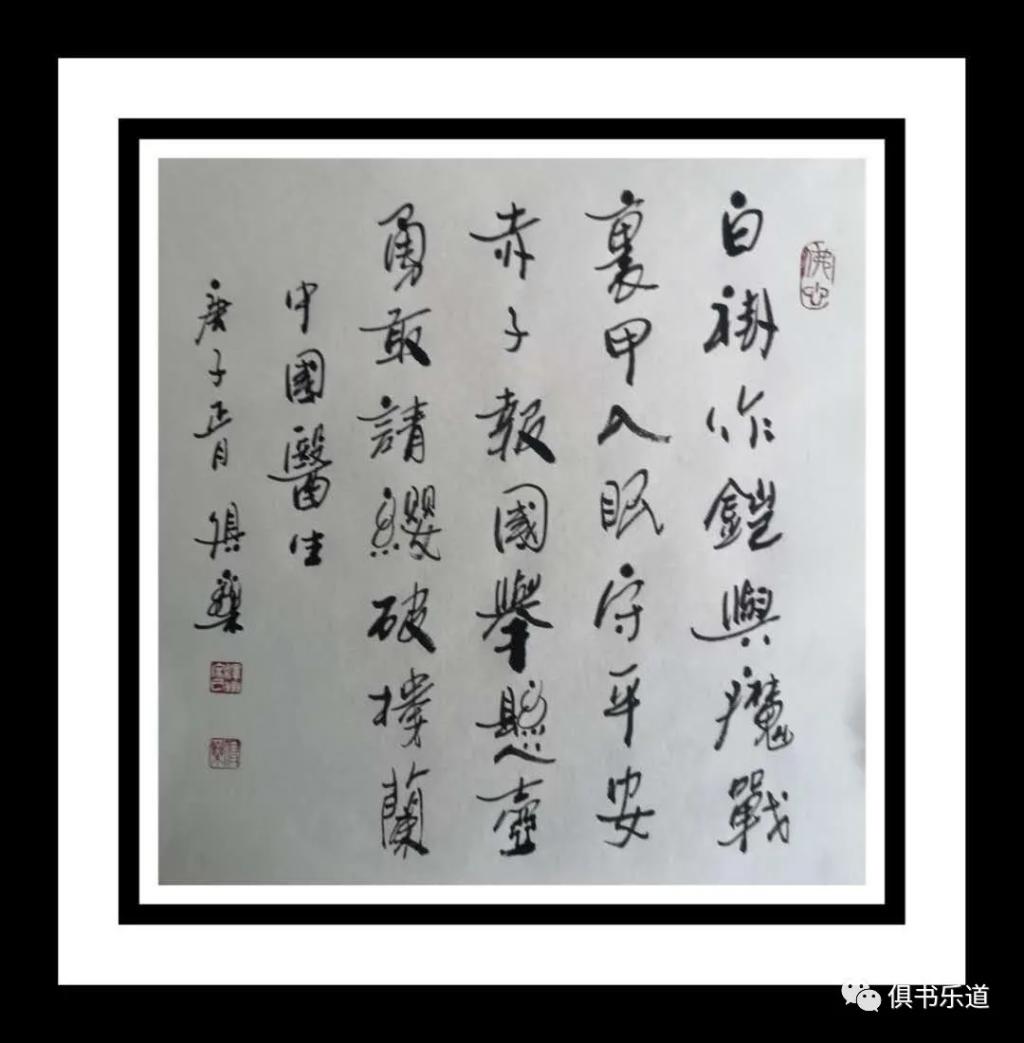 佛心
白褂作鎧與魔戰
裹甲入眠守平安
赤子報國舉懸壺
勇敢請纓破樓蘭
中國醫生
庚子正月 俱
俱书乐道